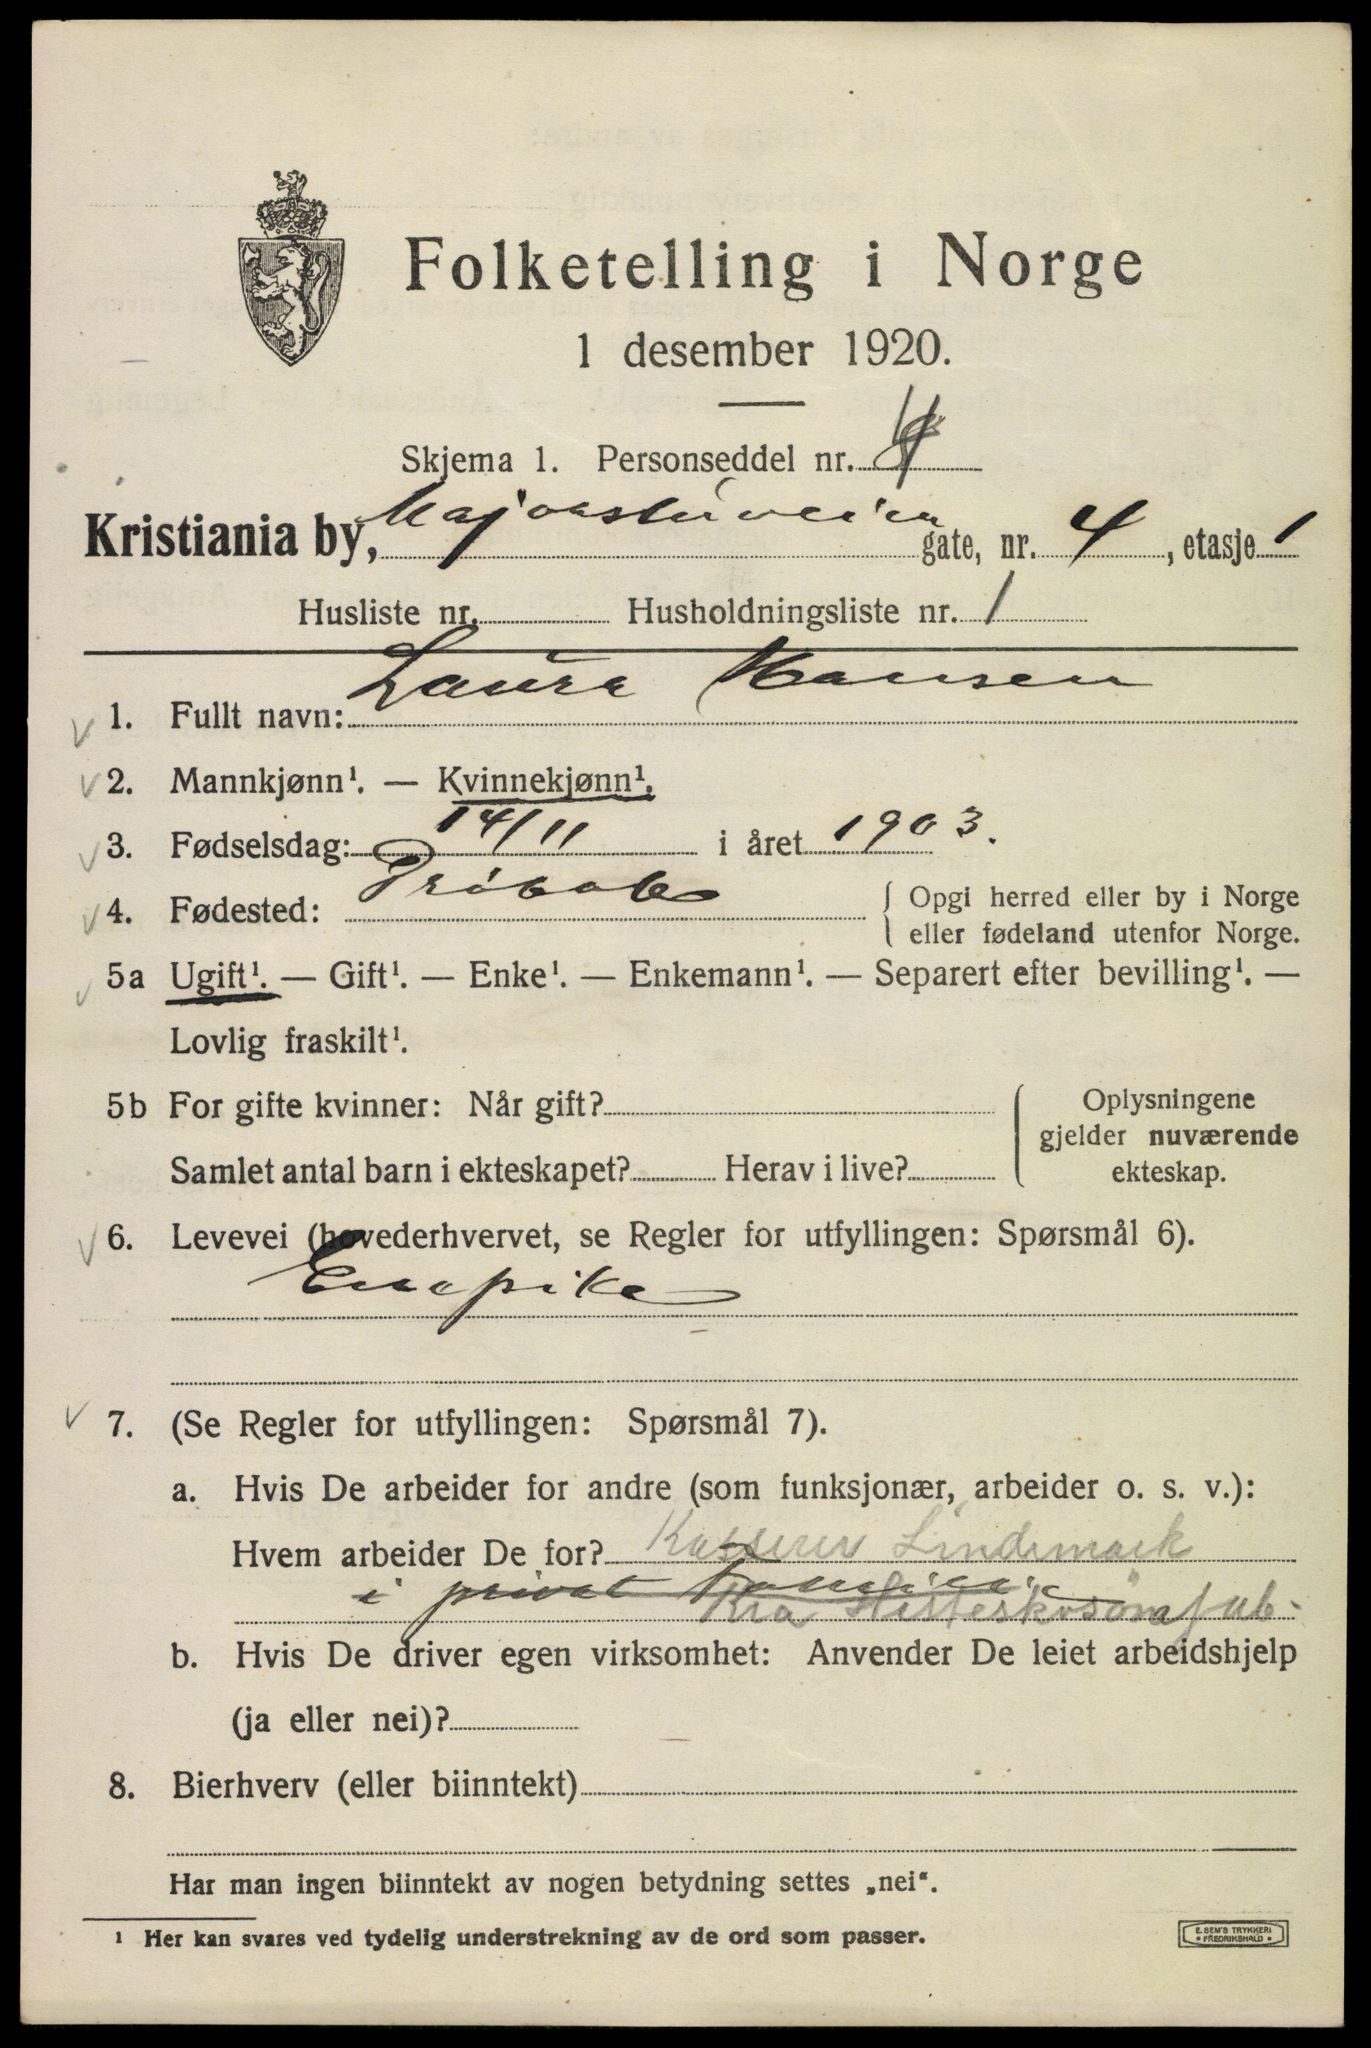 Folketelling i Norge
1 desember 1920.
Skjema 1. Personseddel nr.
Kristiania by, Majorstuveien gate, nr. 4, etasje 1
Husliste nr. Husholdningsliste nr. 1
1. Fullt navn: Laura Hansen
2. Mannkjønn¹. — Kvinnekjønn¹.
3. Fødselsdag: 14/11 i året 1903.
4. Fødested: Drøbak { Opgi herred eller by i Norge
eller fødeland utenfor Norge.
5a Ugift¹. — Gift¹. — Enke¹. — Enkemann¹. — Separert efter bevilling¹. —
Lovlig fraskilt¹.
5b For gifte kvinner: Når gift? { Oplysningene
gjelder nuværende
Samlet antal barn i ekteskapet? Herav i live? ekteskap.
6. Levevei (hovederhvervet, se Regler for utfyllingen: Spørsmål 6).
Enepike
7. (Se Regler for utfyllingen: Spørsmål 7).
a. Hvis De arbeider for andre (som funksjonær, arbeider o. s. v.):
Hvem arbeider De for? Kasserer Lindemark
i privat familie
Kra Hesteskosømfab.
b. Hvis De driver egen virksomhet: Anvender De leiet arbeidshjelp
(ja eller nei)?
8. Bierhverv (eller biinntekt)
Har man ingen biinntekt av nogen betydning settes „nei“.
¹ Her kan svares ved tydelig understrekning av de ord som passer.
E. SEM'S TRYKKERI
FREDRIKSHALD